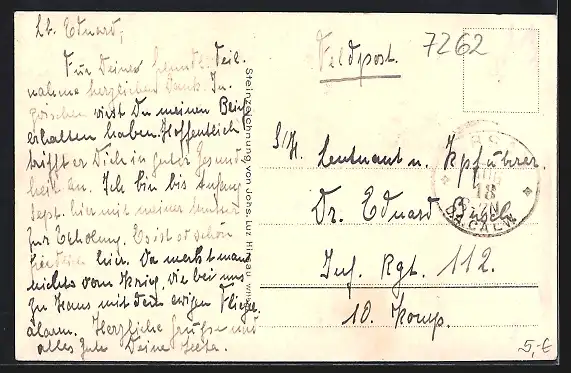 Lb. Eduard,
Für Deine freundl. Teil-
nahme herzlichen Dank. In-
zwischen wirst Du meinen Brief
erhalten haben. Hoffentlich
trifft er Dich in guter Gesund-
heit an. Ich bin bis Anfang
Sept. hier mit meiner
zur Erholung. Es ist so schön
hier. Da merkt man
nichts vom Krieg, wie bei uns
zu Haus mit dem ewigen Flieger-
alarm. Herzliche Grüsse und
alles Gute Deine
Steinzeichnung von Johs. Luz Hirsau
Feldpost.
7262
S/H. Leutnant u. Kpführer.
Dr. Eduard Busch
Inf. Rgt. 112.
10. Komp.
18
CALW
5,-€